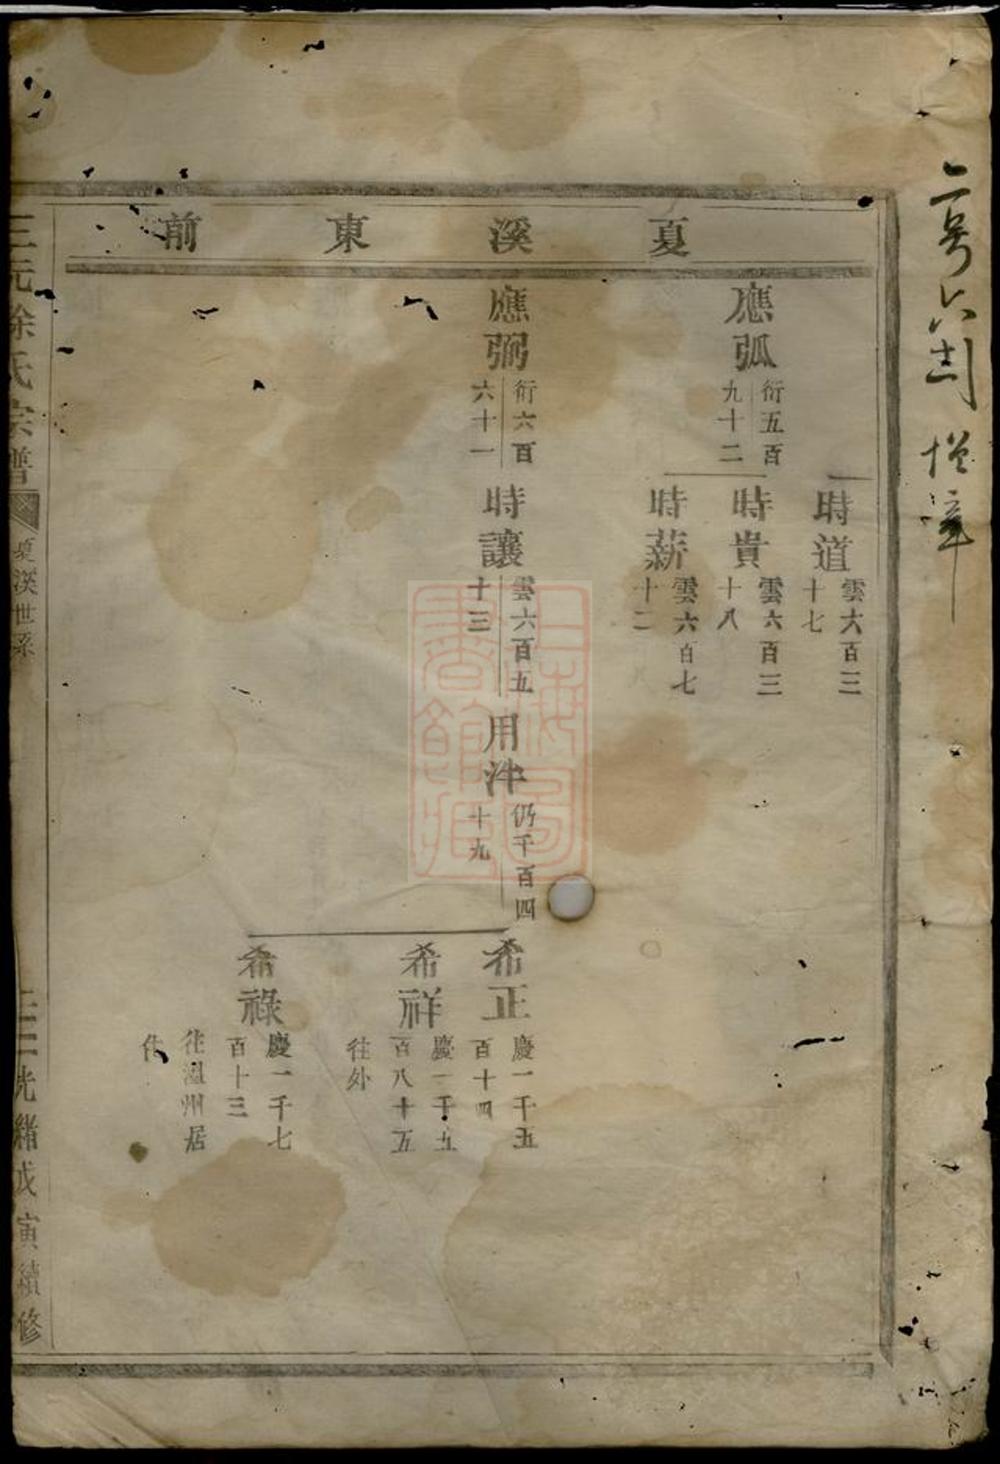 夏溪東前
時道
雲六百三
十七
應弧
衍五百
九十二
時貴
雲六百三
十八
時薪
雲六百七
十二
應弼
衍六百
六十一
時讓
雲六百五
十三
用
仍千百四
十九
希正
慶一千五
百十四
希祥
慶一千五
百八十五
往外
希祿
慶一千七
百十三
往溫州居
住
三元徐氏宗譜
夏溪世系
光緒戊寅續修
上海圖書館藏